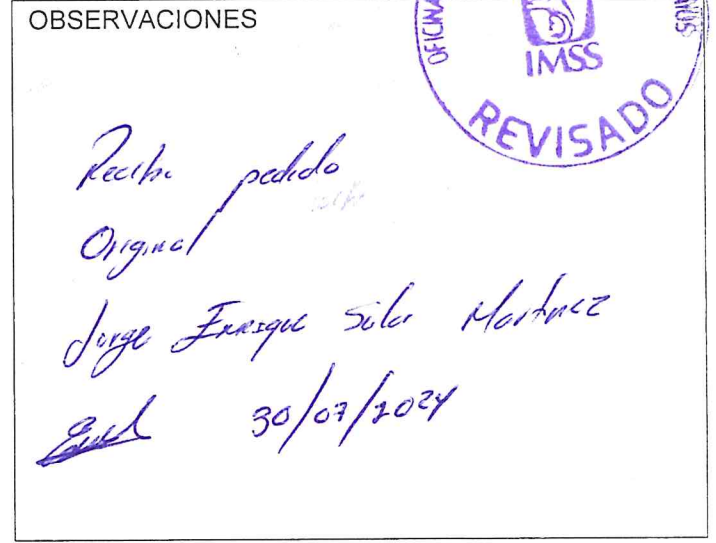 OBSERVACIONES
OFICINA
IMSS
REVISADO
Recibi pedido
Original
Jorge Enrique Silar Martinez
30/07/2024